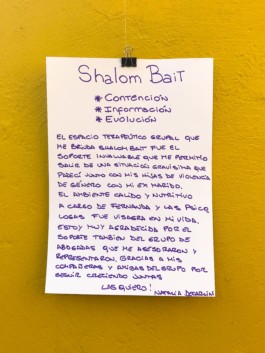 Shalom Bait
* Contención
* Información
* Evolución
EL ESPACIO TERAPEUTICO GRUPAL QUE
ME BRINDA SHALOM BAIT FUE EL
SOPORTE INVALUABLE QUE ME PERMITIO
SALIR DE UNA SITUACIÓN GRAVISIMA QUE
PADECÍ JUNTO CON MIS HIJAS DE VIOLENCIA
DE GÉNERO CON MI EX MARIDO.
EL AMBIENTE CALIDO Y NUTRITIVO
A CARGO DE FERNANDA Y LAS PSICO
LOGAS FUE VISAGRA EN MI VIDA.
ESTOY MUY AGRADECIDA POR EL
SOPORTE TAMBIEN DEL GRUPO DE
ABOGADAS QUE ME ASESORARON Y
REPRESENTARON, GRACIAS A MIS
COMPAÑERAS Y AMIGAS DEL GRUPO POR
SEGUIR CRECIENDO JUNTAS
LAS QUIERO!
NATALIA